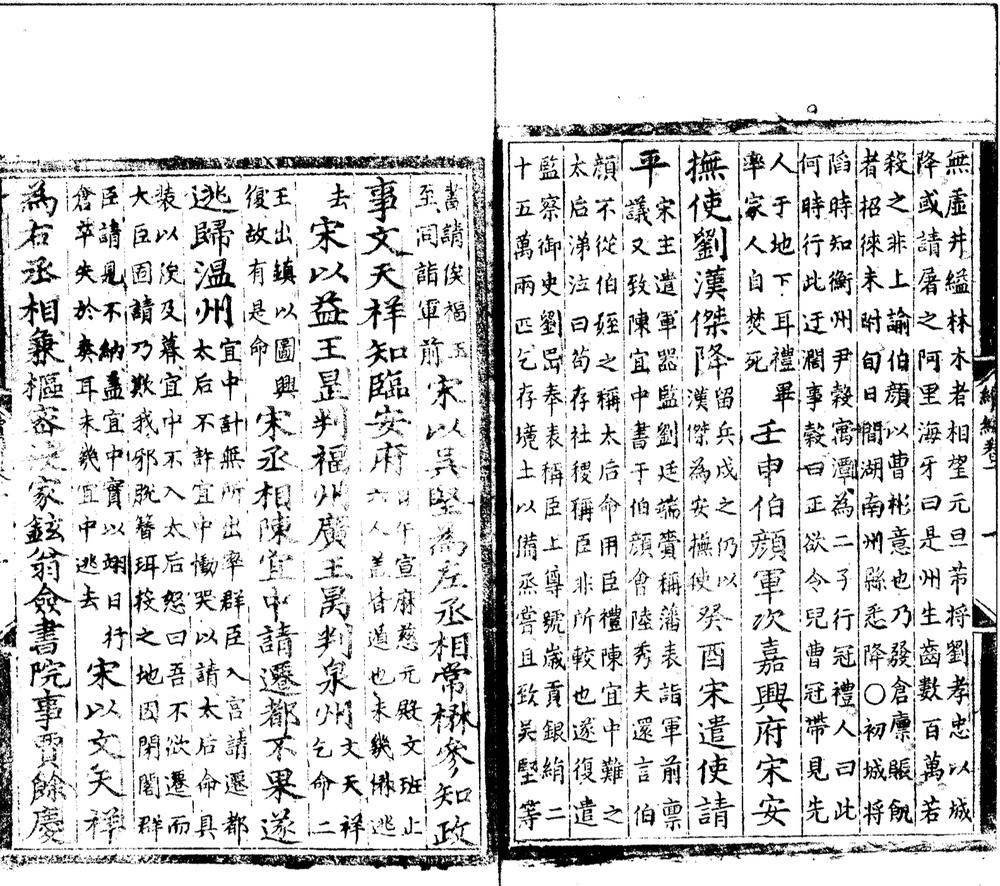 無虛井縊林木者相望元旦芾将劉孝忠以城
降或請屠之阿里海牙曰是州生齒數百萬若
殺之非上諭伯顔以曹彬意也乃發倉廪賑飢
者招徠未附旬日間湖南州縣悉降〇初城将
陷時知衡州尹穀寓潭為二子行冠禮人曰此
何時行此迂濶事穀曰正欲令兒曹冠帶見先
人于地下耳禮畢
率家人自焚死
壬申伯顔軍次嘉興府宋安
撫使劉漢傑降
留兵戍之仍以
漢傑為安撫使
癸酉宋遣使請
平
宋主遣軍器監劉廷瑞賫稱藩表詣軍前禀
議又致陳宜中書于伯顔會陸秀夫還言伯
顔不從伯姪之稱太后命用臣禮陳宜中難之
太后涕泣曰苟存社稷稱臣非所較也遂復遣
監察御史劉岊奉表稱臣上尊號歲貢銀絹二
十五萬兩匹乞存境土以備烝嘗且致吴堅等
請俟福王
至同詣軍前
宋以吴堅為左丞相常楙參知政
事文天祥知臨安府
日午宣麻慈元殿文班止
六人蓋皆遁也未幾楙逃
去
宋以益王昰判福州廣王昺判泉州
文天祥
乞命二
王出鎮以圖興
復故有是命
宋丞相陳宜中請遷都不果遂
逃歸温州
宜中計無所出率群臣入宫請遷都
太后不許宜中慟哭以請太后命具
装以俟及暮宜中不入太后怒曰吾不欲遷而
大臣固請乃欺我邪脱簪珥投之地因閉閤群
臣請見不納蓋宜中實以翊日行
倉卒失於奏耳未幾宜中逃去
宋以文天祥
為右丞相兼樞密使家鉉翁僉書院事賈餘慶